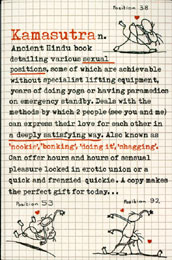 Position 38
Kamasutra n.
Ancient Hindu book
detailing various sexual
positions, some of which are achievable
without specialist lifting equipment,
years of doing yoga or having paramedics
on emergency standby. Deals with the
methods by which 2 people (see you and me)
can express their love for each other in
a deeply satisfying way. Also known as
'nookie', 'bonking', 'doing it', 'shagging'.
Can offer hours and hours of sensual
pleasure locked in erotic union or a
quick and frenzied quickie. A copy makes
the perfect gift for today...
Position 53
Position 92